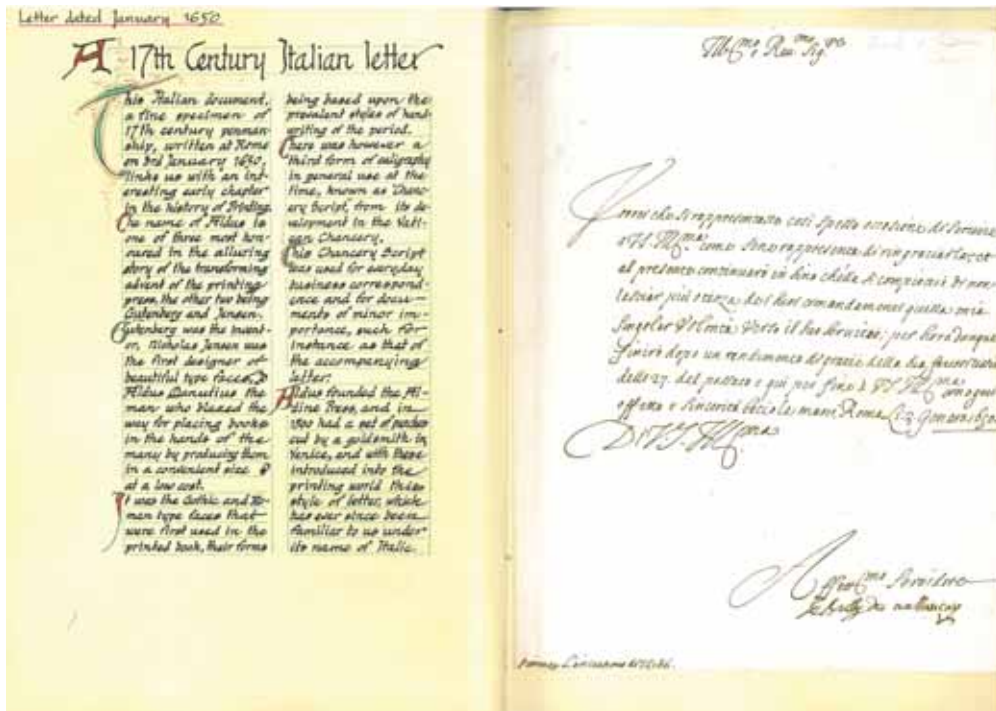 Letter dated January 1650.
A 17th Century Italian letter
This Italian document,
a fine specimen of
17th century penman-
ship, written at Rome
on 3rd January 1650,
links us with an int-
eresting early chapter
in the history of Printing.
The name of Aldus is
one of three most hon-
oured in the alluring
story of the transforming
advent of the printing
press, the other two being
Gutenberg and Jensen.
Gutenberg was the invent-
or, Nicholas Jensen was
the first designer of
beautiful type faces,
Aldus Manutius the
man who blazed the
way for placing books
in the hands of the
many by producing them
in a convenient size &
at a low cost.
It was the Gothic and Ro-
man type faces that
were first used in the
printed book, their forms
being based upon the
prevalent styles of hand-
writing of the period.
There was however a
third form of caligraphy
in general use at the
time, known as Chanc-
ery Script, from its de-
velopment in the Vati-
can Chancery.
This Chancery Script
was used for everyday
business correspond-
ence and for docu-
ments of minor im-
portance, such for
instance as that of
the accompanying
letter.
Aldus founded the Al-
dine Press, and in
1500 had a set of punches
cut by a goldsmith in
Venice, and with these
introduced into the
printing world this
style of letter, which
has ever since been
familiar to us under
its name of Italic.
Ill.mo e Reu.mo Sig.re
che si rappresentasse così spesso occasione di seruire
come
al presente continuarò in sino che
lasciar più
singolar Volontà verso il suo seruitio; per hora dunque
finirò dopo un rendimento di gratie della sua
delle 27. del passato e qui per fine à
affetto e sincerità bacio le mani Roma
Di V.S. Ill.ma
Affett.mo Seruitore